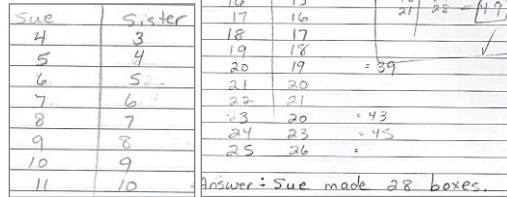 Sue Sister
4 3
5 4
6 5
7 6
8 7
9 8
10 9
11 10
17 16
18 17
19 18
20 19 = 39
21 20
22 21
23 20 = 43
24 23 = 45
25 26 =
Answer: Sue made 28 boxes.
21 28 = 49